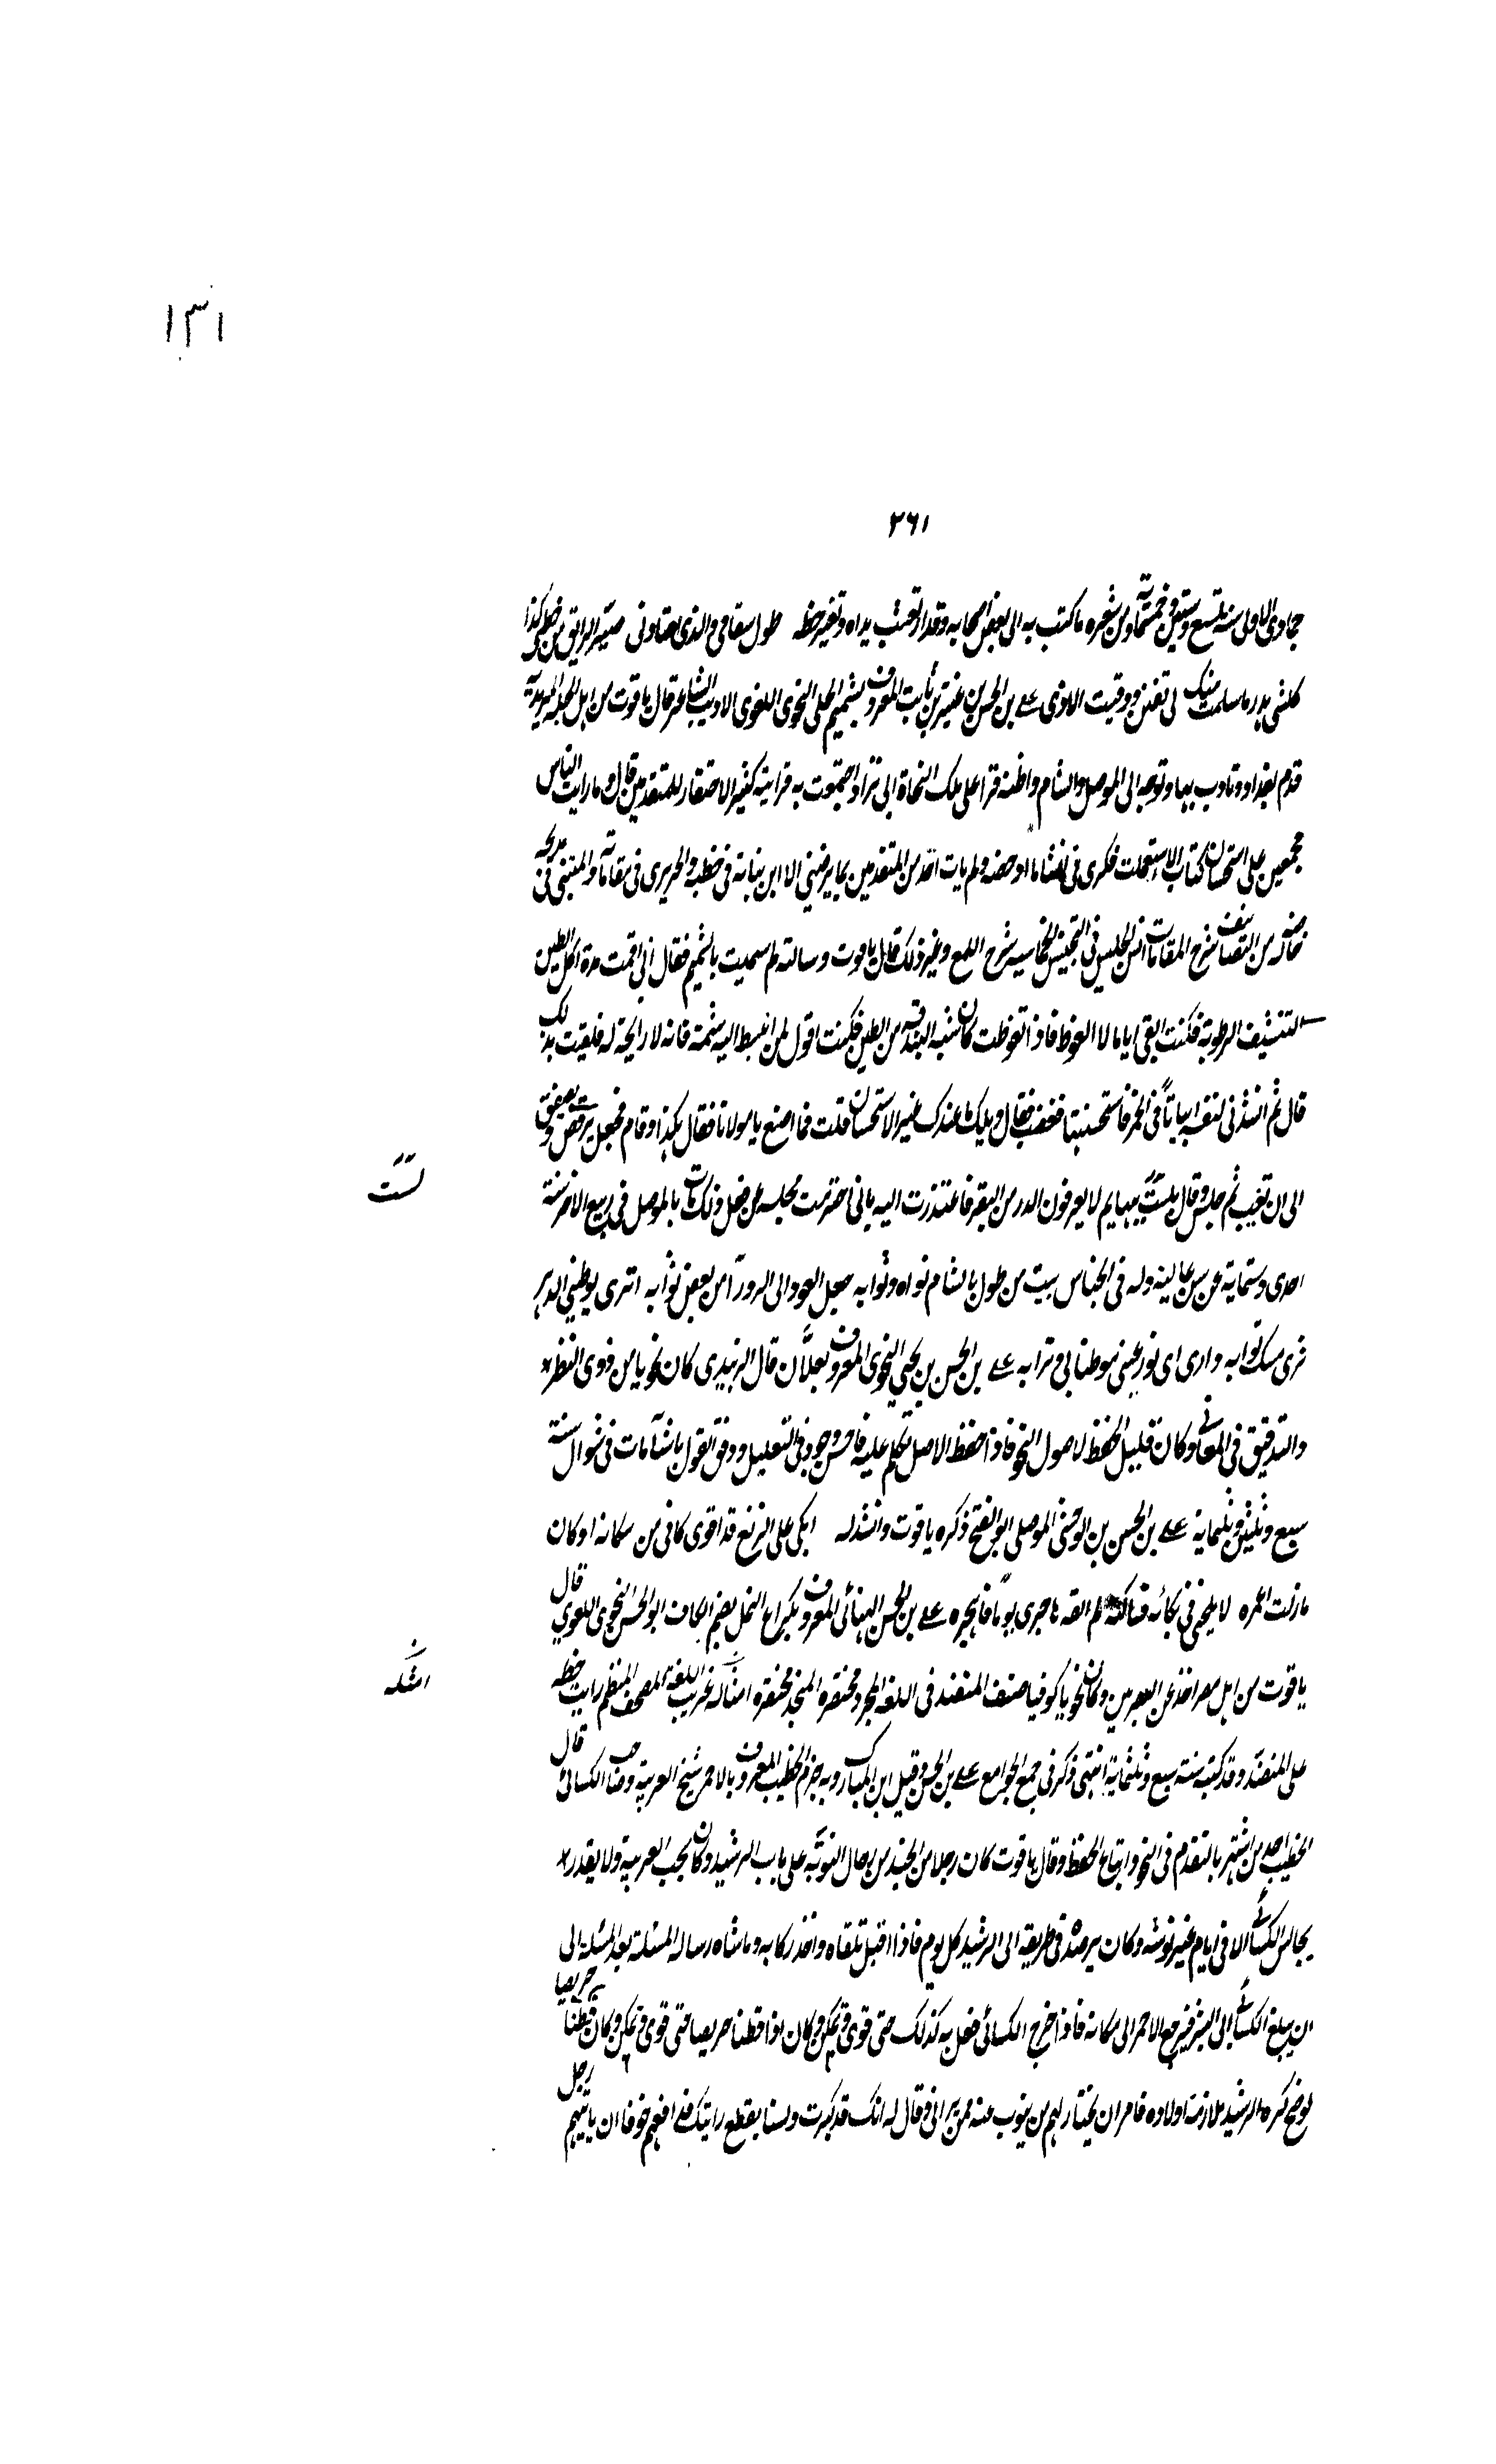 ١٣١
٣٦١
جمادى الاولى سنة تسع وستين وخمسمائة ومن شعره ما كتب به الى بعض اصحابه وقد ارتعشت يداه وتغير خطه طول سقامى والذى اعتادنى صير الرايق من خطى كذا
كلشى هدر ما سلمت منك لى نفس ووقيت الاذى على بن الحسن بن عنتر بن ثابت المعروف بشميم الحلى النحوى اللغوى الاديب الشاعر قال ياقوت من اهل الحلة المزيدية
قدم بغداد وتادب بها وتوجه الى الموصل والشام واظنه قرا على ملك النحاة ابى نزار اجتمعت به فرايته كثير الاحتقار للمتقدمين قال وما رايت الناس
مجمعين على استحسان كتاب الا استعملت فكرى فى انشاء ما ادحضه ولم يات احد من المتقدمين بما يرضينى الا ابن نباتة فى خطبه والحريرى فى مقاماته والمتنبى فى مديحه
خاصة له من التصانيف شرح المقامات انس الجليس فى التجنيس الخماسية شرح اللمع وغير ذلك قال ياقوت وسالته لم سميت بالشميم فقال انى اقمت مدة اكل الطين
لتنشيف الرطوبة فكنت ابقى اياما لا اتغوط فاذا تغوطت كان شبه البندقة من الطين فكنت اقول لمن انبسط اليه شمه فانه لا رايحة له فلقبت بذلك
قال ثم انشدنى لنفسه ابياتاً فى الخمر فاستحسنتها فغضب فقال ويلك ما عندك غير الاستحسان قلت فما اصنع يا مولانا فقال هكذا وقام فجعل يرقص ويصفق
الى ان تعب ثم جلس وقال بليت ببهايم لا يعرفون الدر من البعر فاعتذرت اليه بانى احترمت مجلسه عن فعل ذلك مات بالموصل فى ربيع الاخر سنة
احدى وستماية عن سن عالية وله فى الجناس بيت من طول بالشام نواه وثوابه جعل العود الى الزوراء من بعض ثوابه اترى يوطينى الدهر
ثرى مسك ترابه وارى اى نور عينى موطنا لى وترابه على بن الحسن بن يحيى النحوى المعروف بعلان قال الزبيدى كان نحويا من ذوى النظر
والتدقيق فى المعانى وكان قليل الحفظ لاصول النحو فاذا حفظ الاصل تكلم عليه فاحسن وجود فى التعليل ودقق القول ما شاء مات فى شوال سنة
سبع وثلثين وثلثماية على بن الحسن بن الوحشى الموصلى ابو الفتح ذكره ياقوت وانشد له ابكى على الربع قد اقوى كانى من سكانه او كان
ما زلت اعمره لا يلحنى فى بكائه لم القه ما جرى يوما فاهجره على بن الحسن الهنائى المعروف بكراع النمل بضم الكاف ابو الحسن النحوى اللغوى قال
ياقوت من اهل مصر اخذ عن البصريين وكان نحويا كوفيا صنف المنضد فى اللغة المجرد مختصره المنجد مختصره امثلة غريب اللغة المصحف المنظم رايت خطه
على المنضد وقد كتبه سنة سبع وثلثماية انتهى ذكر فى جمع الجوامع على بن الحسن وقيل ابن المبارك وبه جزم الخطيب المعروف بالاحمر شيخ العربية وصاحب الكسائى قال
الخطيب احد من اشتهر بالتقدم فى النحو واتساع الحفظ وقال ياقوت كان رجلا من الجند من رجال النوبة على باب الرشيد وكان يحب العربية ولا يقدر
يجالس الكسائى الا فى ايام غير نوبته وكان يرصده فى طريقه الى الرشيد كل يوم فاذا اقبل تلقاه واخذ ركابه وماشاه وساله المسئلة بعد المسئلة الى
ان يبلغ الكسائى الى الستر فيرجع الاحمر الى مكانه فاذا خرج الكسائى فعل به كذلك حتى قوى وتمكن وكان فطنا حريصا
كره الرشيد ملازمته اولاده فامر ان يختار لهم من ينوب عنه ممن يرضاه وقال له انك قد كبرت ولسنا بقطع راتبك فدافعهم خوفا ان ياتيهم رجل
امثلة